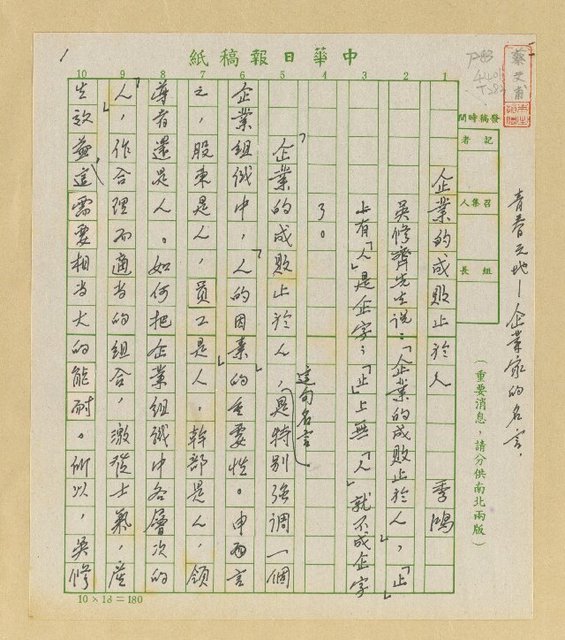 中華日報稿紙
發稿時間
記者
召集人
組長
(重要消息,請分供南北兩版)
青春天地—企業家的名言.
1 2 3 4 5 6 7 8 9 10
企業的成敗止於人 季鴻
吳修齊先生說:「企業的成敗止於人,「止」
上有「人」是企字;「止」上無「人」就不成企字
了。」
「企業的成敗止於人,這句名言」是特別強調一個
企業組織中,「人的因素」的重要性。申而言
之,股東是人,員工是人,幹部是人,領
導者還是人。如何把企業組織中各層次的
「人」,作合理而適當的組合,激發士氣,產
生效益,這需要相當大的能耐。所以,吳修
10×18=180
1